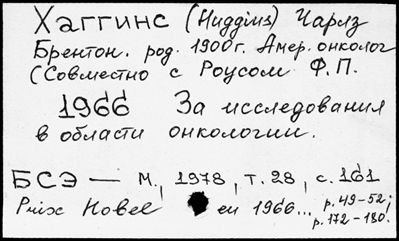 Хаггинс (Huggins) Чарлз
Брентон. род. 1900г. Амер. онколог
(Совместно с Роусом Ф.П.
1966 За исследования
в области онкологии.
БСЭ — М., 1978, т. 28, с. 161
Prix Nobel en 1966... p. 49-52;
p. 172-180.